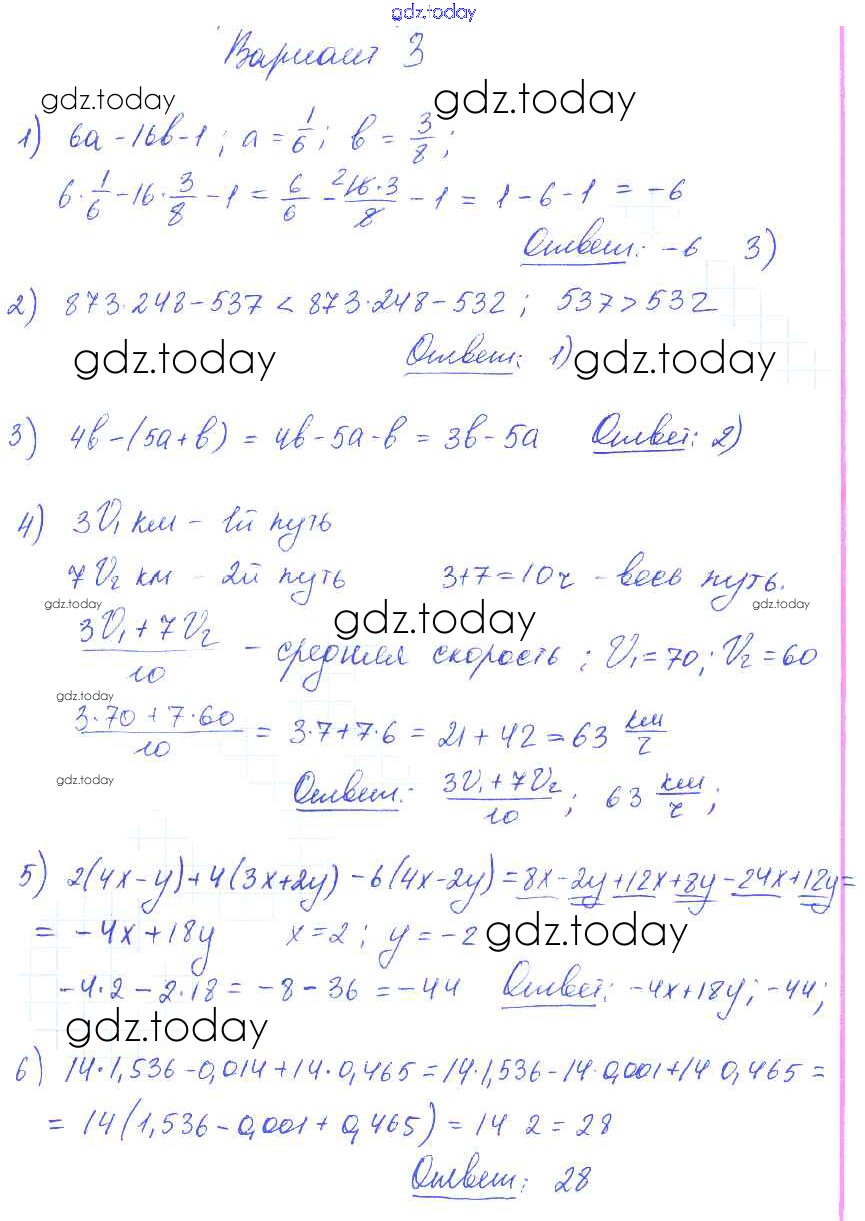 gdz.today
Вариант 3
gdz.today gdz.today
1) 6a - 16b - 1 ; a = 1/6 ; b = 3/8 ;
6 · 1/6 - 16 · 3/8 - 1 = 6/6 - 2 16·3/8 - 1 = 1 - 6 - 1 = -6
Ответ: -6 3)
2) 873·248 - 537 < 873·248 - 532 ; 537 > 532
gdz.today Ответ: 1) gdz.today
3) 4b - (5a + b) = 4b - 5a - b = 3b - 5a Ответ: 2)
4) 3V₁ км - 1й путь
7V₂ км - 2й путь 3+7=10ч - весь путь.
gdz.today gdz.today gdz.today
(3V₁ + 7V₂)/10 - средняя скорость ; V₁ = 70 ; V₂ = 60
gdz.today
(3·70 + 7·60)/10 = 3·7 + 7·6 = 21 + 42 = 63 км/ч
gdz.today
Ответ: (3V₁ + 7V₂)/10 ; 63 км/ч ;
5) 2(4x - y) + 4(3x + 2y) - 6(4x - 2y) = 8x - 2y + 12x + 8y - 24x + 12y =
= -4x + 18y x = 2 ; y = -2 gdz.today
-4·2 - 2·18 = -8 - 36 = -44 Ответ: -4x + 18y ; -44 ;
gdz.today
6) 14·1,536 - 0,014 + 14·0,465 = 14·1,536 - 14·0,001 + 14 0,465 =
= 14(1,536 - 0,001 + 0,465) = 14 2 = 28
Ответ: 28